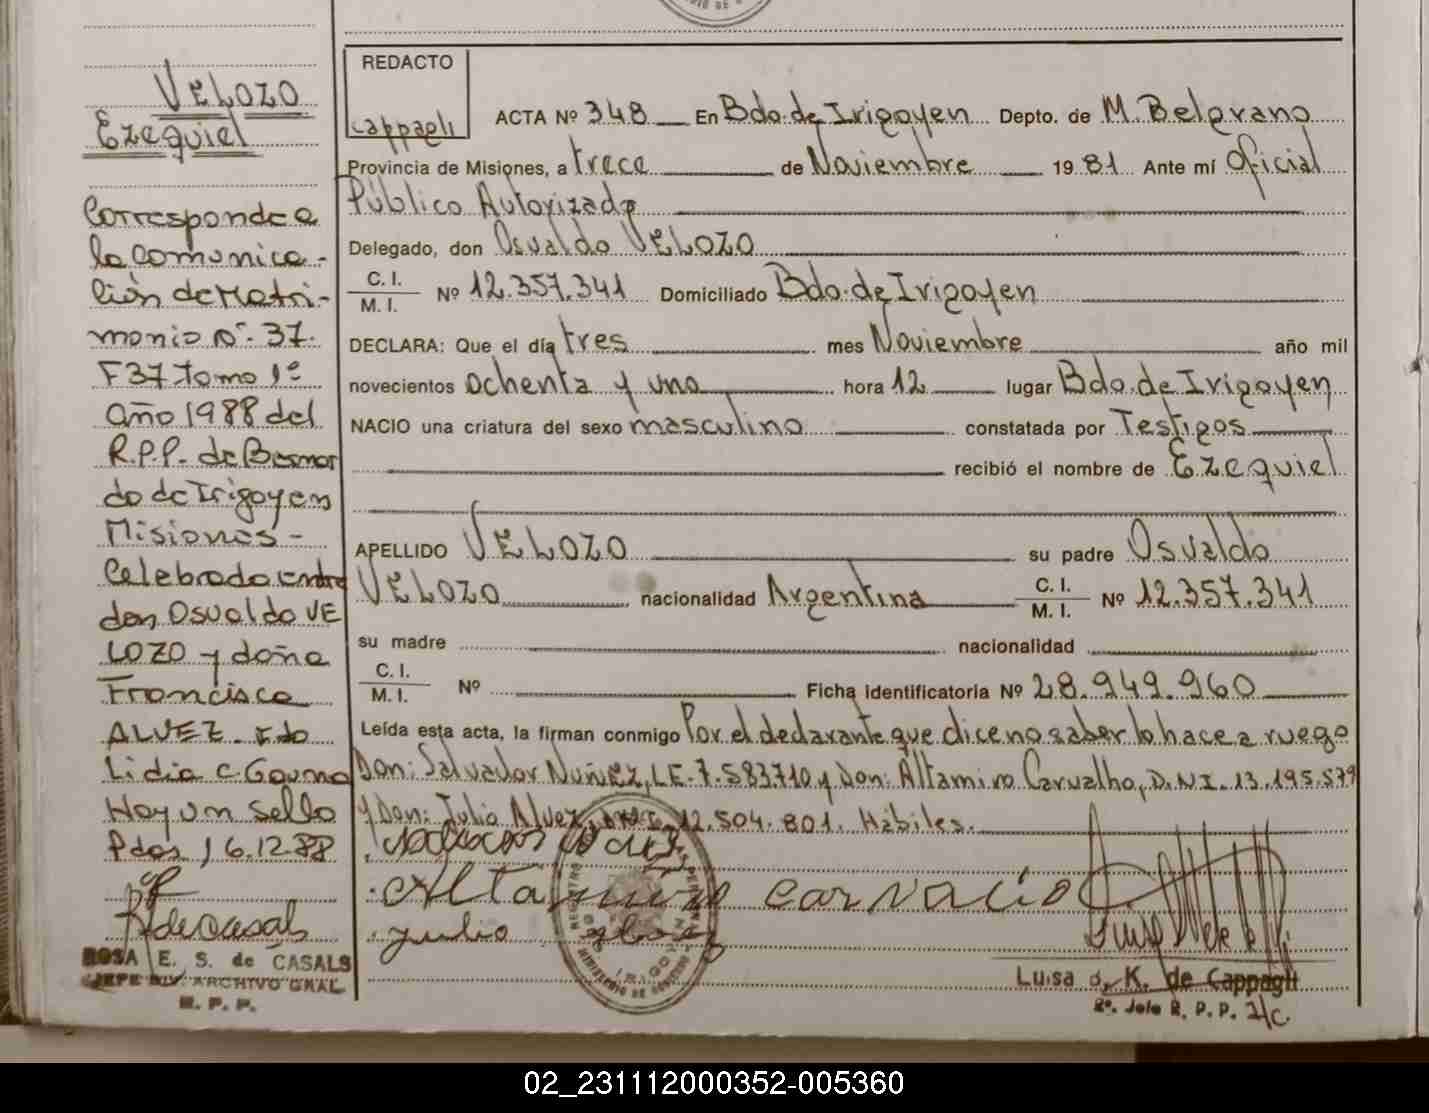 VELOZO
Ezequiel
Corresponde a
la comunica-
ción de Matri-
monio Nº 37.
F37 Tomo 1º
Año 1988 del
R.P.P. de Bernar
do de Irigoyen
Misiones -
Celebrado entre
don Osvaldo VE
LOZO y doña
Francisca
ALVEZ. Fdo
Lidia C.
Hay un sello
Pdas, 6.12.88
ROSA E. S. de CASALS
JEFE DIV. ARCHIVO GRAL
R. P. P.
REDACTO
Cappagli
ACTA Nº 348 En Bdo. de Irigoyen Depto. de M. Belgrano
Provincia de Misiones, a trece de Noviembre 19 81 Ante mí Oficial
Público Autorizado
Delegado, don Osvaldo VELOZO
C. I.
M. I. Nº 12.357.341 Domiciliado Bdo. de Irigoyen
DECLARA: Que el día tres mes Noviembre año mil
novecientos ochenta y uno hora 12 lugar Bdo. de Irigoyen
NACIO una criatura del sexo masculino constatada por Testigos
recibió el nombre de Ezequiel
APELLIDO VELOZO su padre Osvaldo
VELOZO nacionalidad Argentina C. I. M. I. Nº 12.357.341
su madre nacionalidad
C. I.
M. I. Nº Ficha Identificatoria Nº 28.949.960
Leída esta acta, la firman conmigo Por el declarante que dice no saber lo hace a ruego
Don: Salvador Nuñez, LE. 7.583710 y Don: Altamiro Carvalho, D.N.I. 13.195.579
y Don: Julio Alvez, 12.504.801. Hábiles.
Altamiro carvalio
julio
Luisa K. de Cappagli
2º. Jefe R. P. P. I/C
02_231112000352-005360